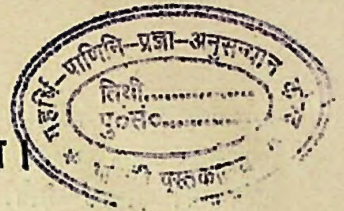 महर्षि-पाणिनि-प्रज्ञा-अनुसन्धान
तिथी..................
पु०सं०..................
पुस्तकालय